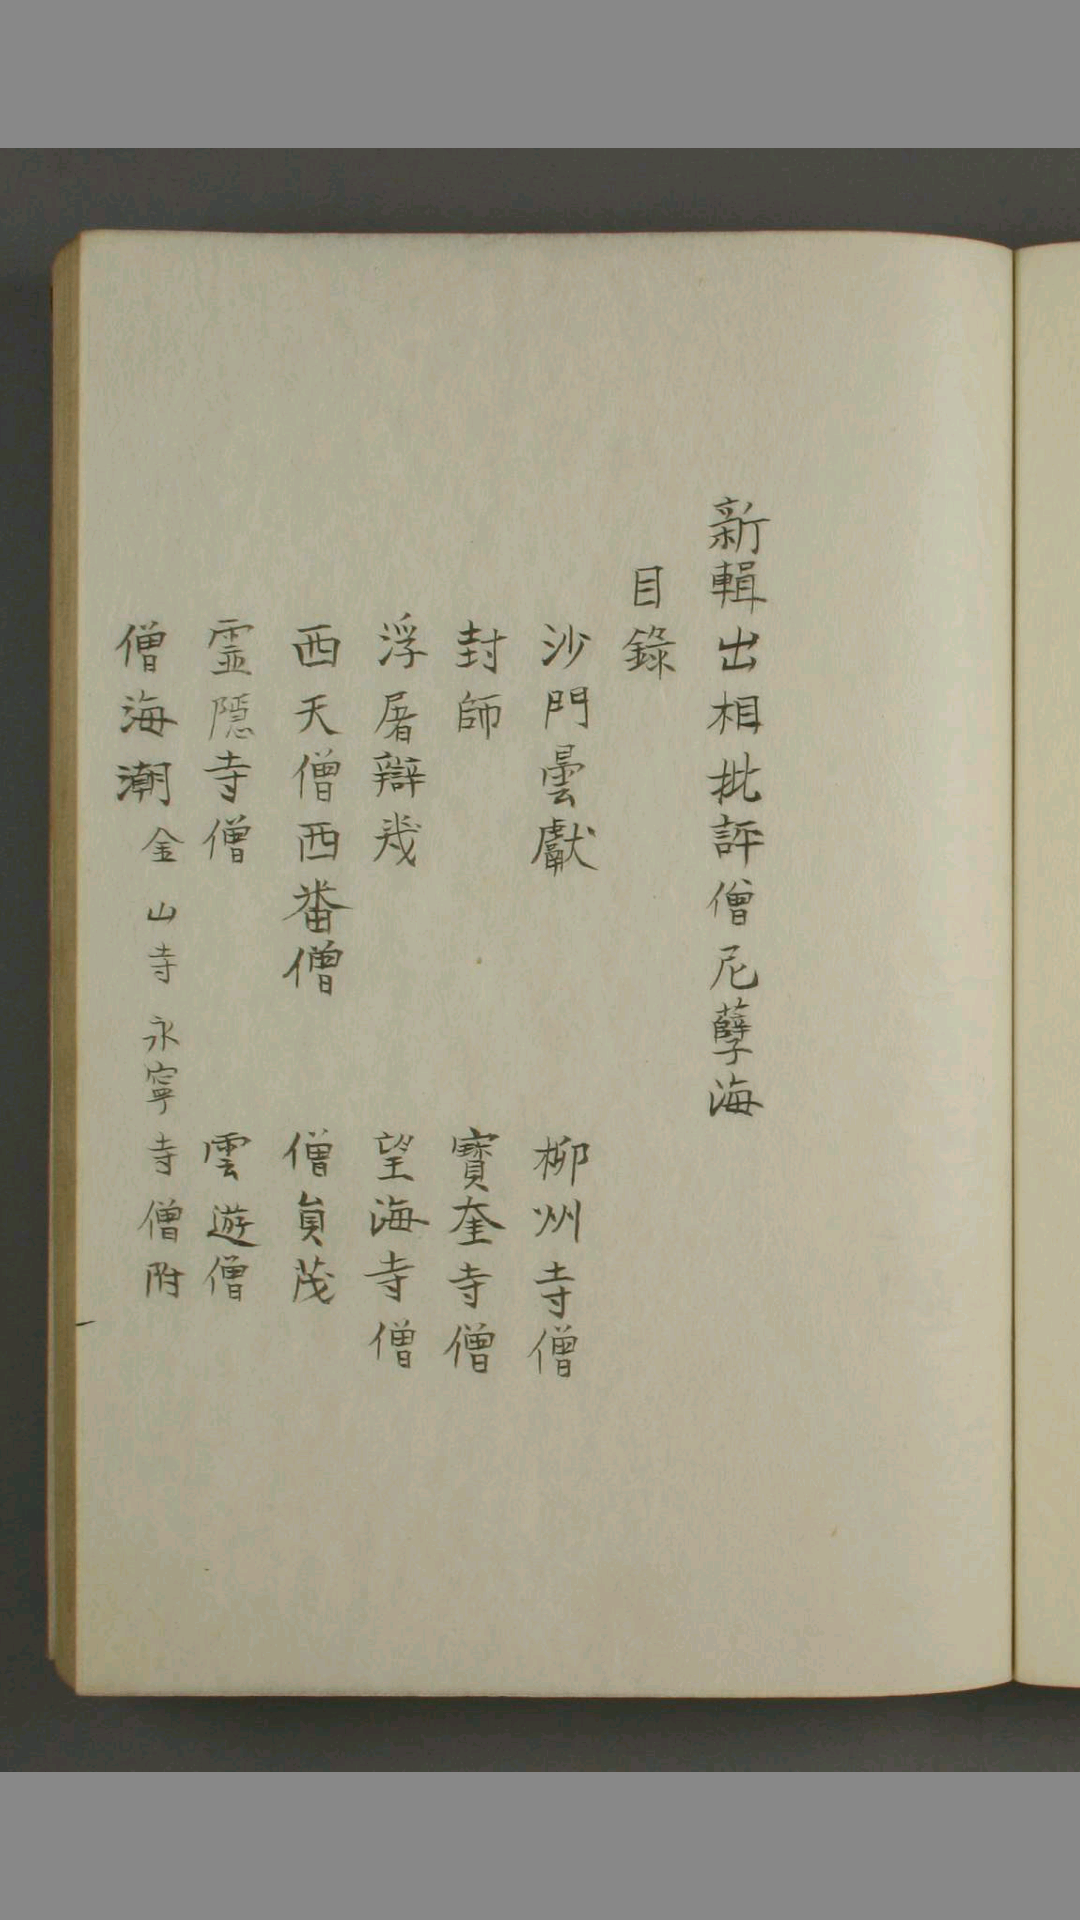 新輯出相批評僧尼孽海
目錄
沙門曇獻　柳州寺僧
封師　寶奎寺僧
浮屠辯㡬　望海寺僧
西天僧西番僧　僧員茂
靈隱寺僧　雲遊僧
僧海潮金山寺永寧寺僧附